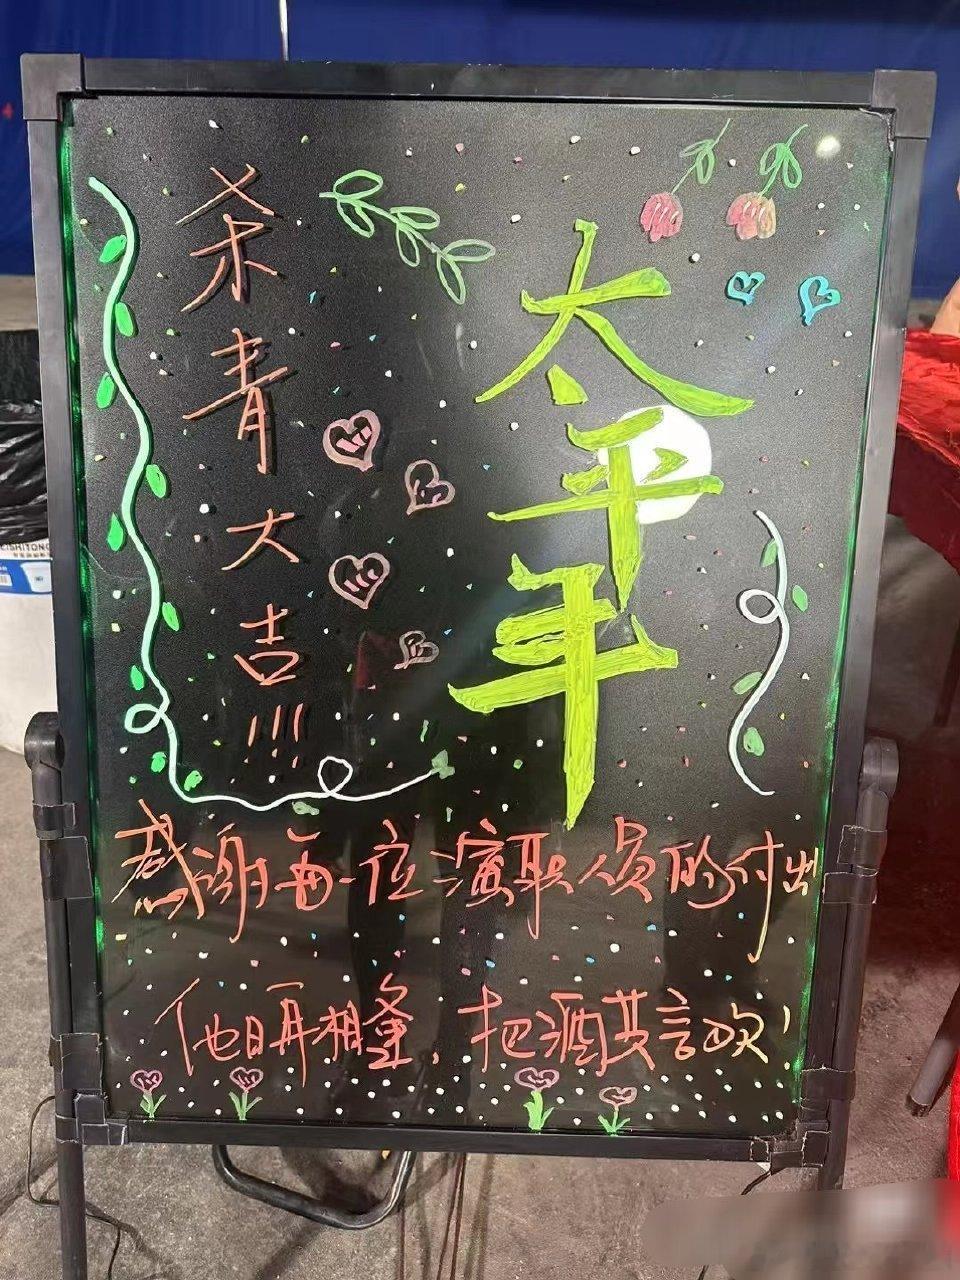 太平年
杀青大吉!!!
感谢每一位演职人员的付出
他日再相逢，把酒共言欢!
EISHITONG